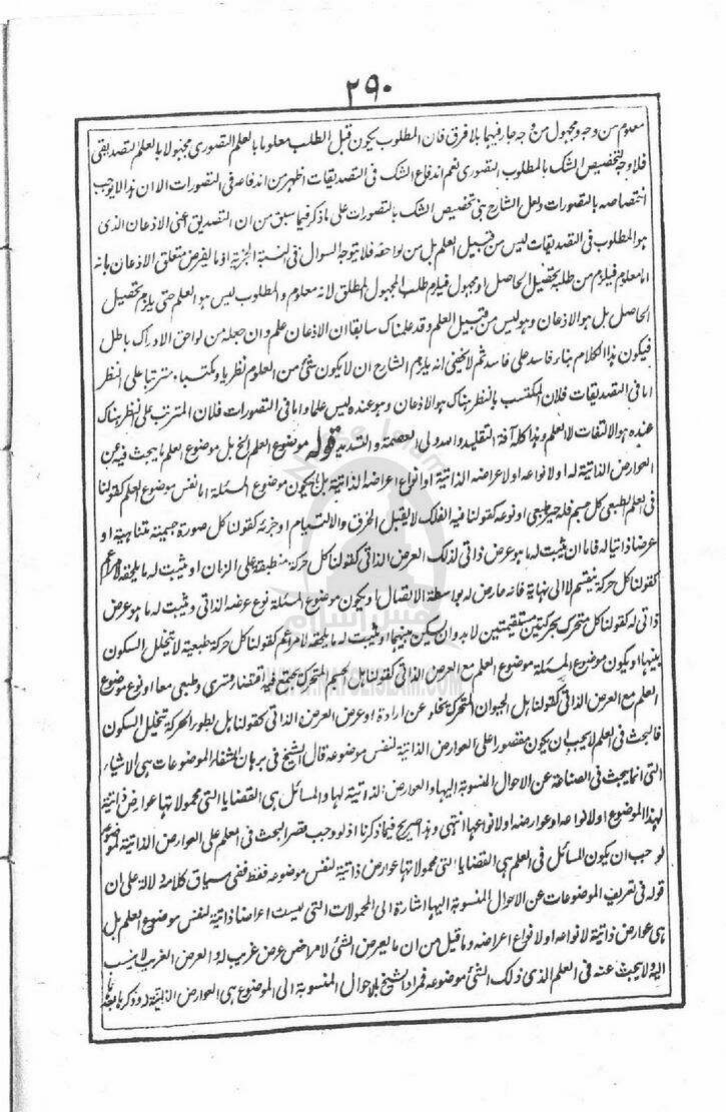 ٢٩٠
معلوم من وجه ومجهول من وجه جار فيهما بلا فرق فان المطلوب يكون قبل الطلب معلوما بالعلم التصورى مجهولا بالعلم التصديقى
فلا وجه لتخصيص الشك بالمطلوب التصورى نعم اندفاع الشك فى التصديقات اظهر من اندفاعه فى التصورات الا ان هذا لا يوجب
اختصاصه بالتصورات ولعل الشارح بنى تخصيص الشك بالتصورات على ما ذكر فيما سبق من ان التصديق اعنى الاذعان الذى
هو المطلوب فى التصديقات ليس من قبيل العلم بل من لواحقه فلا يتوجه السوال فى النسبة الجزئية او ما يفرض متعلق الاذعان بانه
اما معلوم فيلزم من طلبه تحصيل الحاصل او مجهول فيلزم طلب المجهول المطلق لانه معلوم والمطلوب ليس هو العلم حتى يلزم تحصيل
الحاصل بل هو الاذعان وهو ليس من قبيل العلم وقد علمناك سابقا ان الاذعان علم وان جعله من لواحق الادراك باطل
فيكون هذا الكلام بناء فاسد على فاسد ثم لا يخفى انه يلزم الشارح ان لا يكون شئ من العلوم نظريا ومكتسبا، مترتبا على النظر
اما فى التصديقات فلان المكتسب بالنظر هناك هو الاذعان وهو عنده ليس علما واما فى التصورات فلان المترتب على النظر هناك
عنده هو الالتفات لا العلم وهذا كله آفة التقليد والله ولى العصمة والتسديد قوله موضوع العلم الخ بل موضوع العلم ما يبحث فيه عن
العوارض الذاتية له او لانواعه او لاعراضه الذاتية او انواع اعراضه الذاتية بل يكون موضوع المسئلة اما نفس موضوع العلم كقولنا
فى العلم الطبيعى كل جسم فله حيز طبيعى او نوعه كقولنا فيه الفلك لا يقبل الخرق والالتيام او جزئه كقولنا كل صورة جسمية متناهية او
عرضا ذاتيا له فاما ان يثبت له ما هو عرض ذاتى لذلك العرض الذاتى كقولنا كل حركة منطبقة على الزمان او يثبت له ما يلحقه لامر اعم
كقولنا كل حركة ينقسم لا الى نهاية فانه عارض له بواسطة الاتصال او يكون موضوع المسئلة نوع عرضه الذاتى ويثبت له ما هو عرض
ذاتى له كقولنا كل متحرك بحركتين مستقيمتين لا بد وان يسكن بينهما او يثبت له ما يلحقه لامر اعم كقولنا كل حركة طبيعية لا يتخلل السكون
بينها او يكون موضوع المسئلة موضوع العلم مع العرض الذاتى كقولنا بل الجسم المتحرك يجتمع فيه اقتضاء قسرى وطبعى معا او نوع موضوع
العلم مع العرض الذاتى كقولنا بل الحيوان المتحرك يخلو عن ارادة او عرض العرض الذاتى كقولنا بل بطور الحركة تتخلل السكون
فالبحث فى العلم لا يجب ان يكون مقصورا على العوارض الذاتية لنفس موضوعه قال الشيخ فى برهان الشفاء الموضوعات هى الاشياء
التى انما يبحث فى الصناعة عن الاحوال المنسوبة اليها والعوارض الذاتية لها والمسائل هى القضايا التى محمولاتها عوارض ذاتية
لهذا الموضوع او لانواعه او عوارضه او لانواعها انتهى وهذا صريح فيما ذكرنا اذ لو وجب قصر البحث فى العلم على العوارض الذاتية لموضوعه
لوجب ان يكون المسائل فى العلم هى القضايا التى محمولاتها عوارض ذاتية لنفس موضوعه فقط ففى سياق كلامه دلالة على ان
قوله فى تعريف الموضوعات عن الاحوال المنسوبة اليها اشارة الى المحمولات التى ليست اعراضا ذاتية لنفس موضوع العلم بل
هى عوارض ذاتية لانواعه او لانواع اعراضه وما قيل من ان ما يعرض الشئ لامر اخص عرض غريب له والعرض الغريب لا ينسب
اليه ولا يبحث عنه فى العلم الذى ذلك الشئ موضوعه فمراد الشيخ بالاحوال المنسوبة الى الموضوع هى العوارض الذاتية له وذكرها بعد